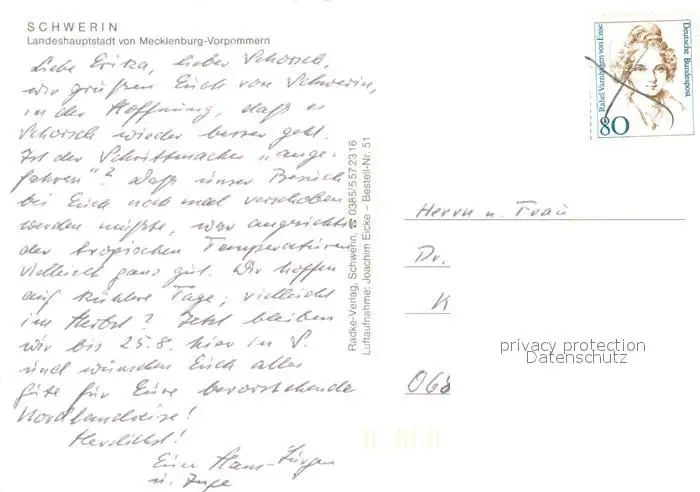 SCHWERIN
Landeshauptstadt von Mecklenburg-Vorpommern
Liebe Erika, lieber Schorsch,
wir grüßen Euch von Schwerin,
in der Hoffnung, daß es
Schorsch wieder besser geht.
Ist der Schrittmacher „ange-
fahren"? Daß unser Besuch
bei Euch noch mal verschoben
werden mußte, war angesichts
der tropischen Temperaturen
vielleicht ganz gut. Wir hoffen
auf kühlere Tage; vielleicht
im Herbst? Jetzt bleiben
wir bis 25.8. hier in S.
und wünschen Euch alles
Gute für Eure bevorstehende
Nordlandreise!
Herzlichst!
Eure Hans-Jürgen
u. Inge
Radke-Verlag, Schwerin, ☎ 0385/5572316
Luftaufnahme: Joachim Eicke – Bestell-Nr. 51
Rahel Varnhagen von Ense
Deutsche Bundespost
80
Herrn u. Frau
Dr.
K
privacy protection
Datenschutz